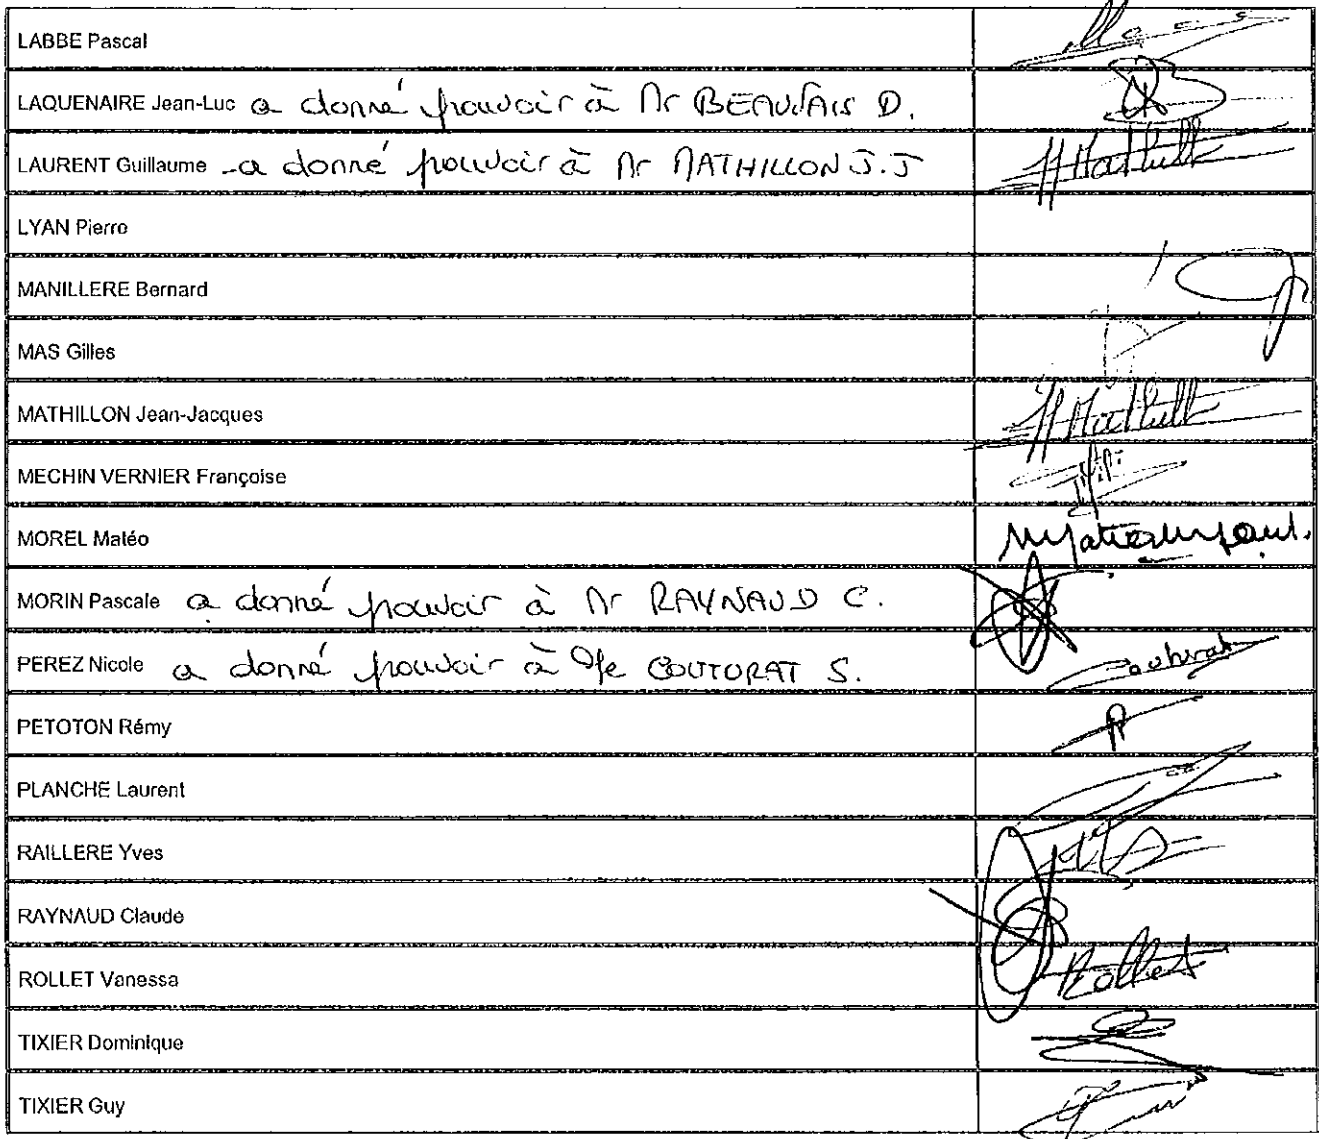 LABBE Pascal
LAQUENAIRE Jean-Luc a donné pouvoir à Mr BEAUVAIS D.
LAURENT Guillaume - a donné pouvoir à Mr MATHILLON J.J
LYAN Pierre
MANILLERE Bernard
MAS Gilles
MATHILLON Jean-Jacques
MECHIN VERNIER Françoise
MOREL Matéo
MORIN Pascale a donné pouvoir à Mr RAYNAUD C.
PEREZ Nicole a donné pouvoir à Mme COUTORAT S. Couturat
PETOTON Rémy
PLANCHE Laurent
RAILLERE Yves
RAYNAUD Claude
ROLLET Vanessa Rollet
TIXIER Dominique
TIXIER Guy